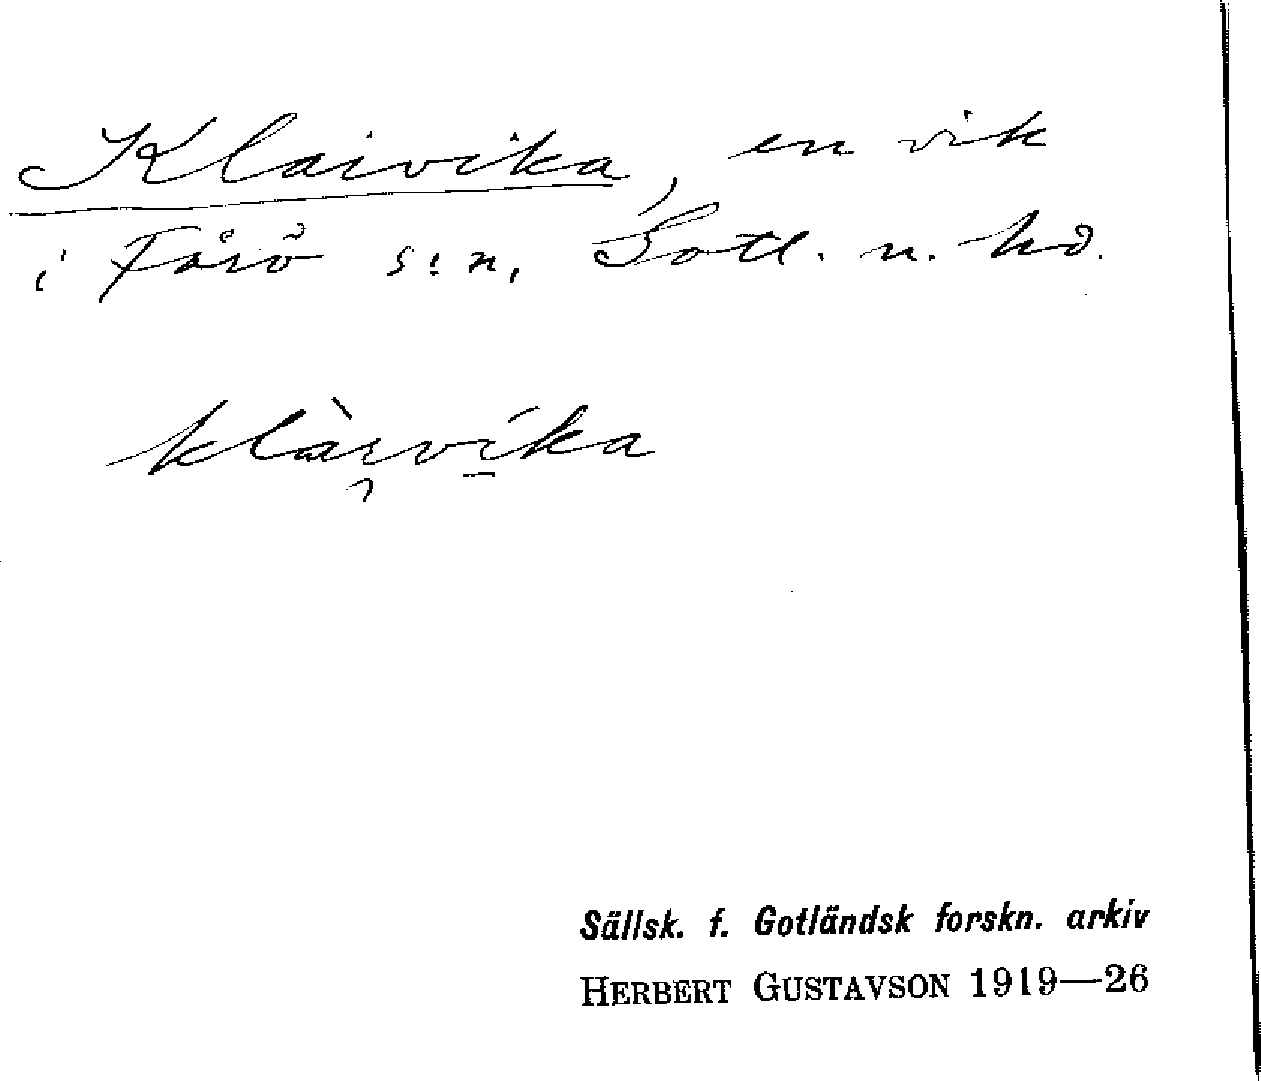 Klaivika, en vik
i Fårö s:n, Gotl. n. hd.
klàı̯vı̲́ka
Sällsk. f. Gotländsk forskn. arkiv
HERBERT GUSTAVSON 1919—26